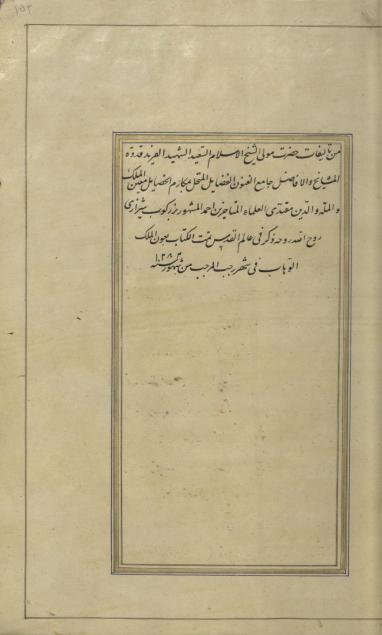 من تالیفات حضرت مولی الشیخ الاسلام السعید الشهید الفرید قدوة
المشایخ والافاضل جامع الفنون الفضایل المتحلی مکارم الخصایل معین الملک
و الملة والدین مقتدی العلماء المتاخرین احمد المشهور بزرکوب شیرازی
روح الله روحه ذکر فی عالم القدس تمت الکتاب بعون الملک
الوهاب فی شهر رجب المرجب من شهور سنه ۱۲۸۳